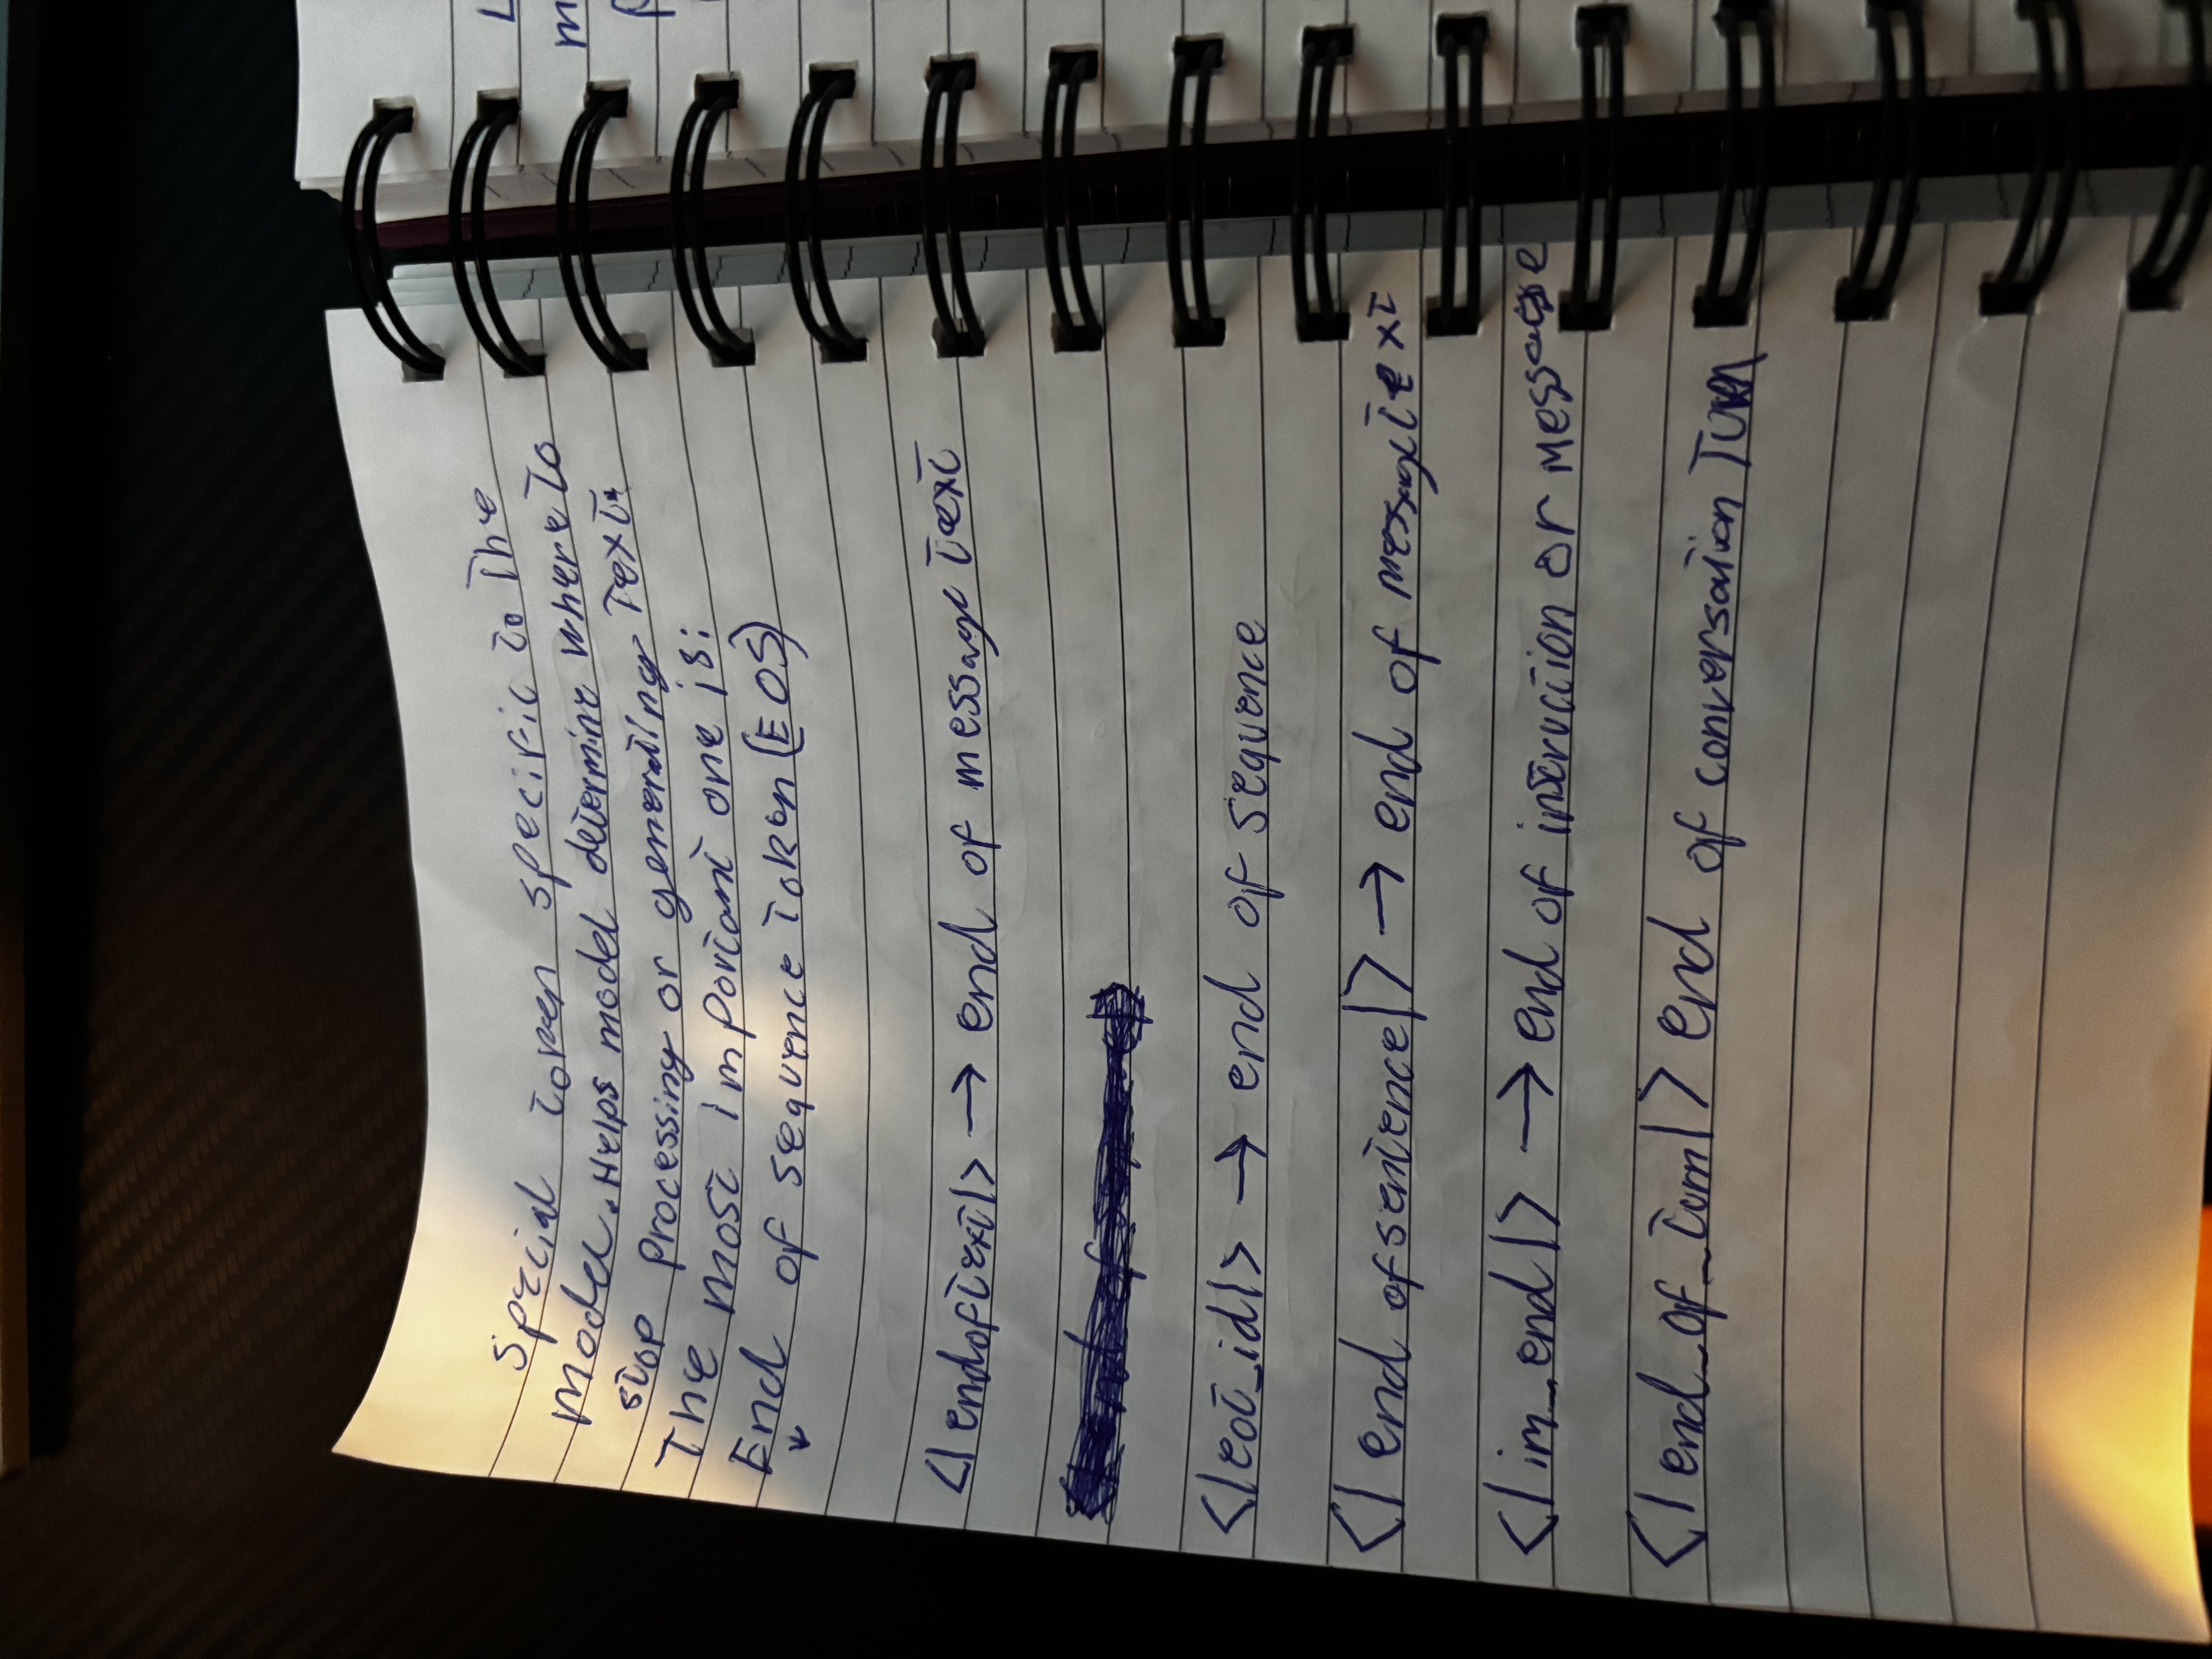 Special token specific to the
Model. Helps model determine where to
stop processing or generating text.
The most important one is:
End of sequence token (EOS)
<|endoftext|> → end of message text
<|eot_id|> → end of sequence
<|end of sentence|> → end of message text
<|im_end|> → end of instruction or message
<|end_of_turn|> end of conversation Turn
L
m